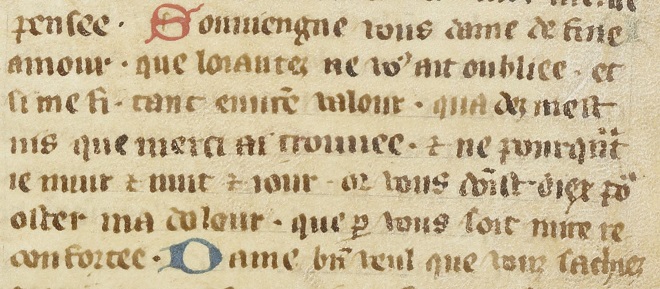 pensee · Souuiengne vous dame de fine
amour · que loiautez ne vo⁹ ait oubliee · et
si me fi · tant en vr̄e valour · qua dez mest
uis que merci ai trouuee · ⁊ ne pourquãt
ie muir ⁊ nuit ⁊ iour · or vous doīst diex po͛
oster ma dolour · que ꝑ vous soit mire re
confortee · Dame bn̄ veul que vous sachiez